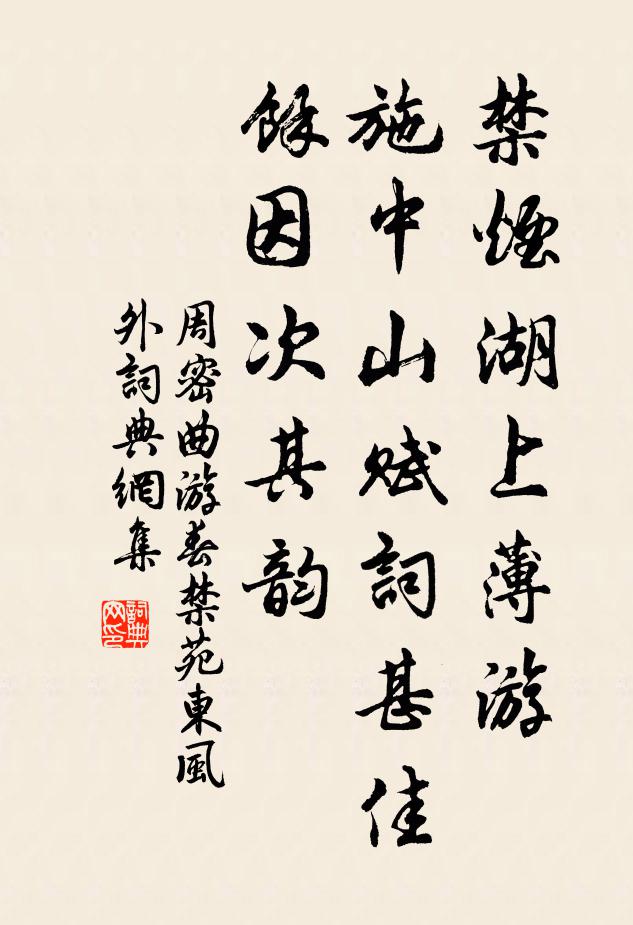 禁煙湖上薄游
施中山賦詞甚佳
餘因次其韵
周密曲游春禁苑東風
外詞典網集
詞典
网印